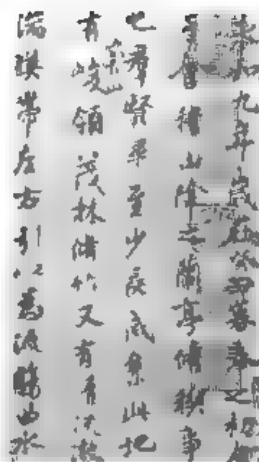 永和九年歲在癸丑暮春之初會
于會稽山陰之蘭亭脩稧事
也羣賢畢至少長咸集此地
有崇山峻領茂林脩竹又有清流激
湍暎帶左右引以為流觴曲水